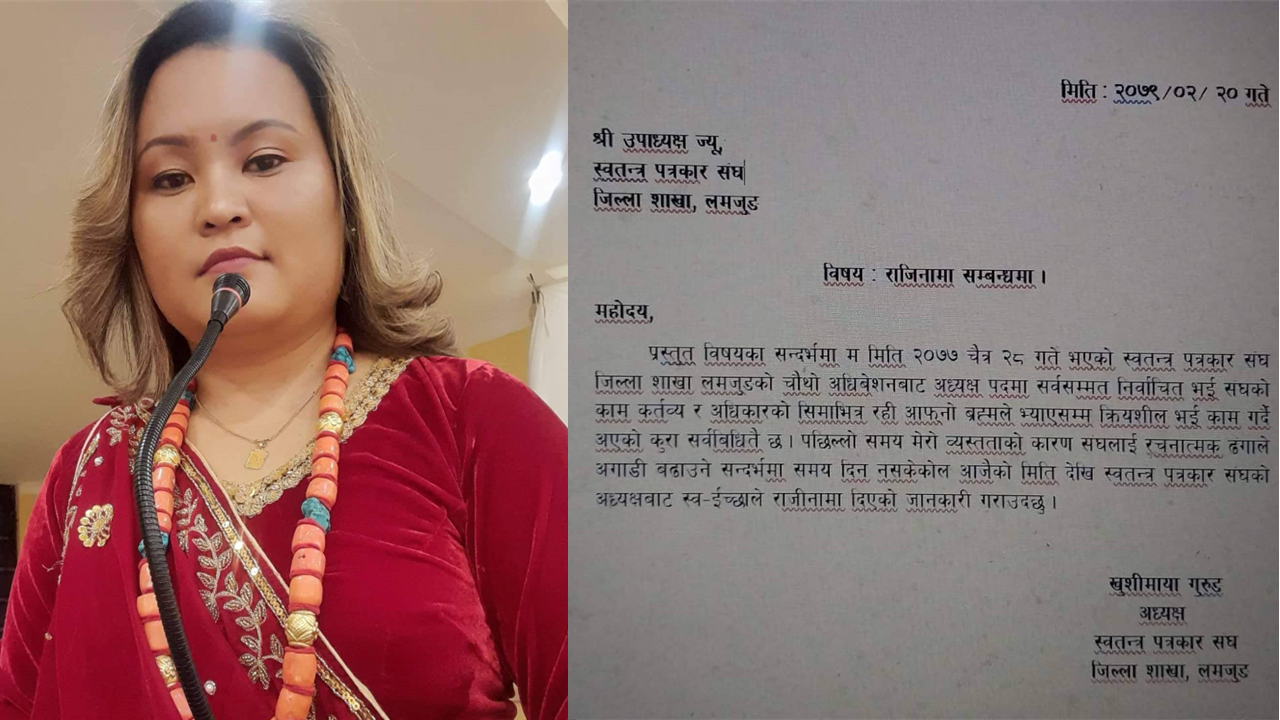 मिति : २०७९/०२/ २० गते
श्री उपाध्यक्ष ज्यू,
स्वतन्त्र पत्रकार संघ
जिल्ला शाखा, लमजुङ
विषय : राजिनामा सम्बन्धमा ।
महोदय,
प्रस्तुत विषयका सन्दर्भमा म मिति २०७७ चैत्र २८ गते भएको स्वतन्त्र पत्रकार संघ
जिल्ला शाखा लमजुङको चौथो अधिबेशनबाट अध्यक्ष पदमा सर्वसम्मत निर्वाचित भई संघको
काम कर्तव्य र अधिकारको सिमाभित्र रही आफ्नो ब्रह्मले भ्याएसम्म क्रियशील भई काम गर्दै
अएको कुरा सर्वबिधितै छ । पछिल्लो समय मेरो व्यस्तताको कारण संघलाई रचनात्मक ढंगाले
अगाडी बढाउने सन्दर्भमा समय दिन नसकेकोल आजेको मिति देखि स्वतन्त्र पत्रकार संघको
अध्यक्षबाट स्व-ईच्छाले राजीनामा दिएको जानकारी गराउदछु ।
खुशीमाया गुरुङ
अध्यक्ष
स्वतन्त्र पत्रकार संघ
जिल्ला शाखा, लमजुङ